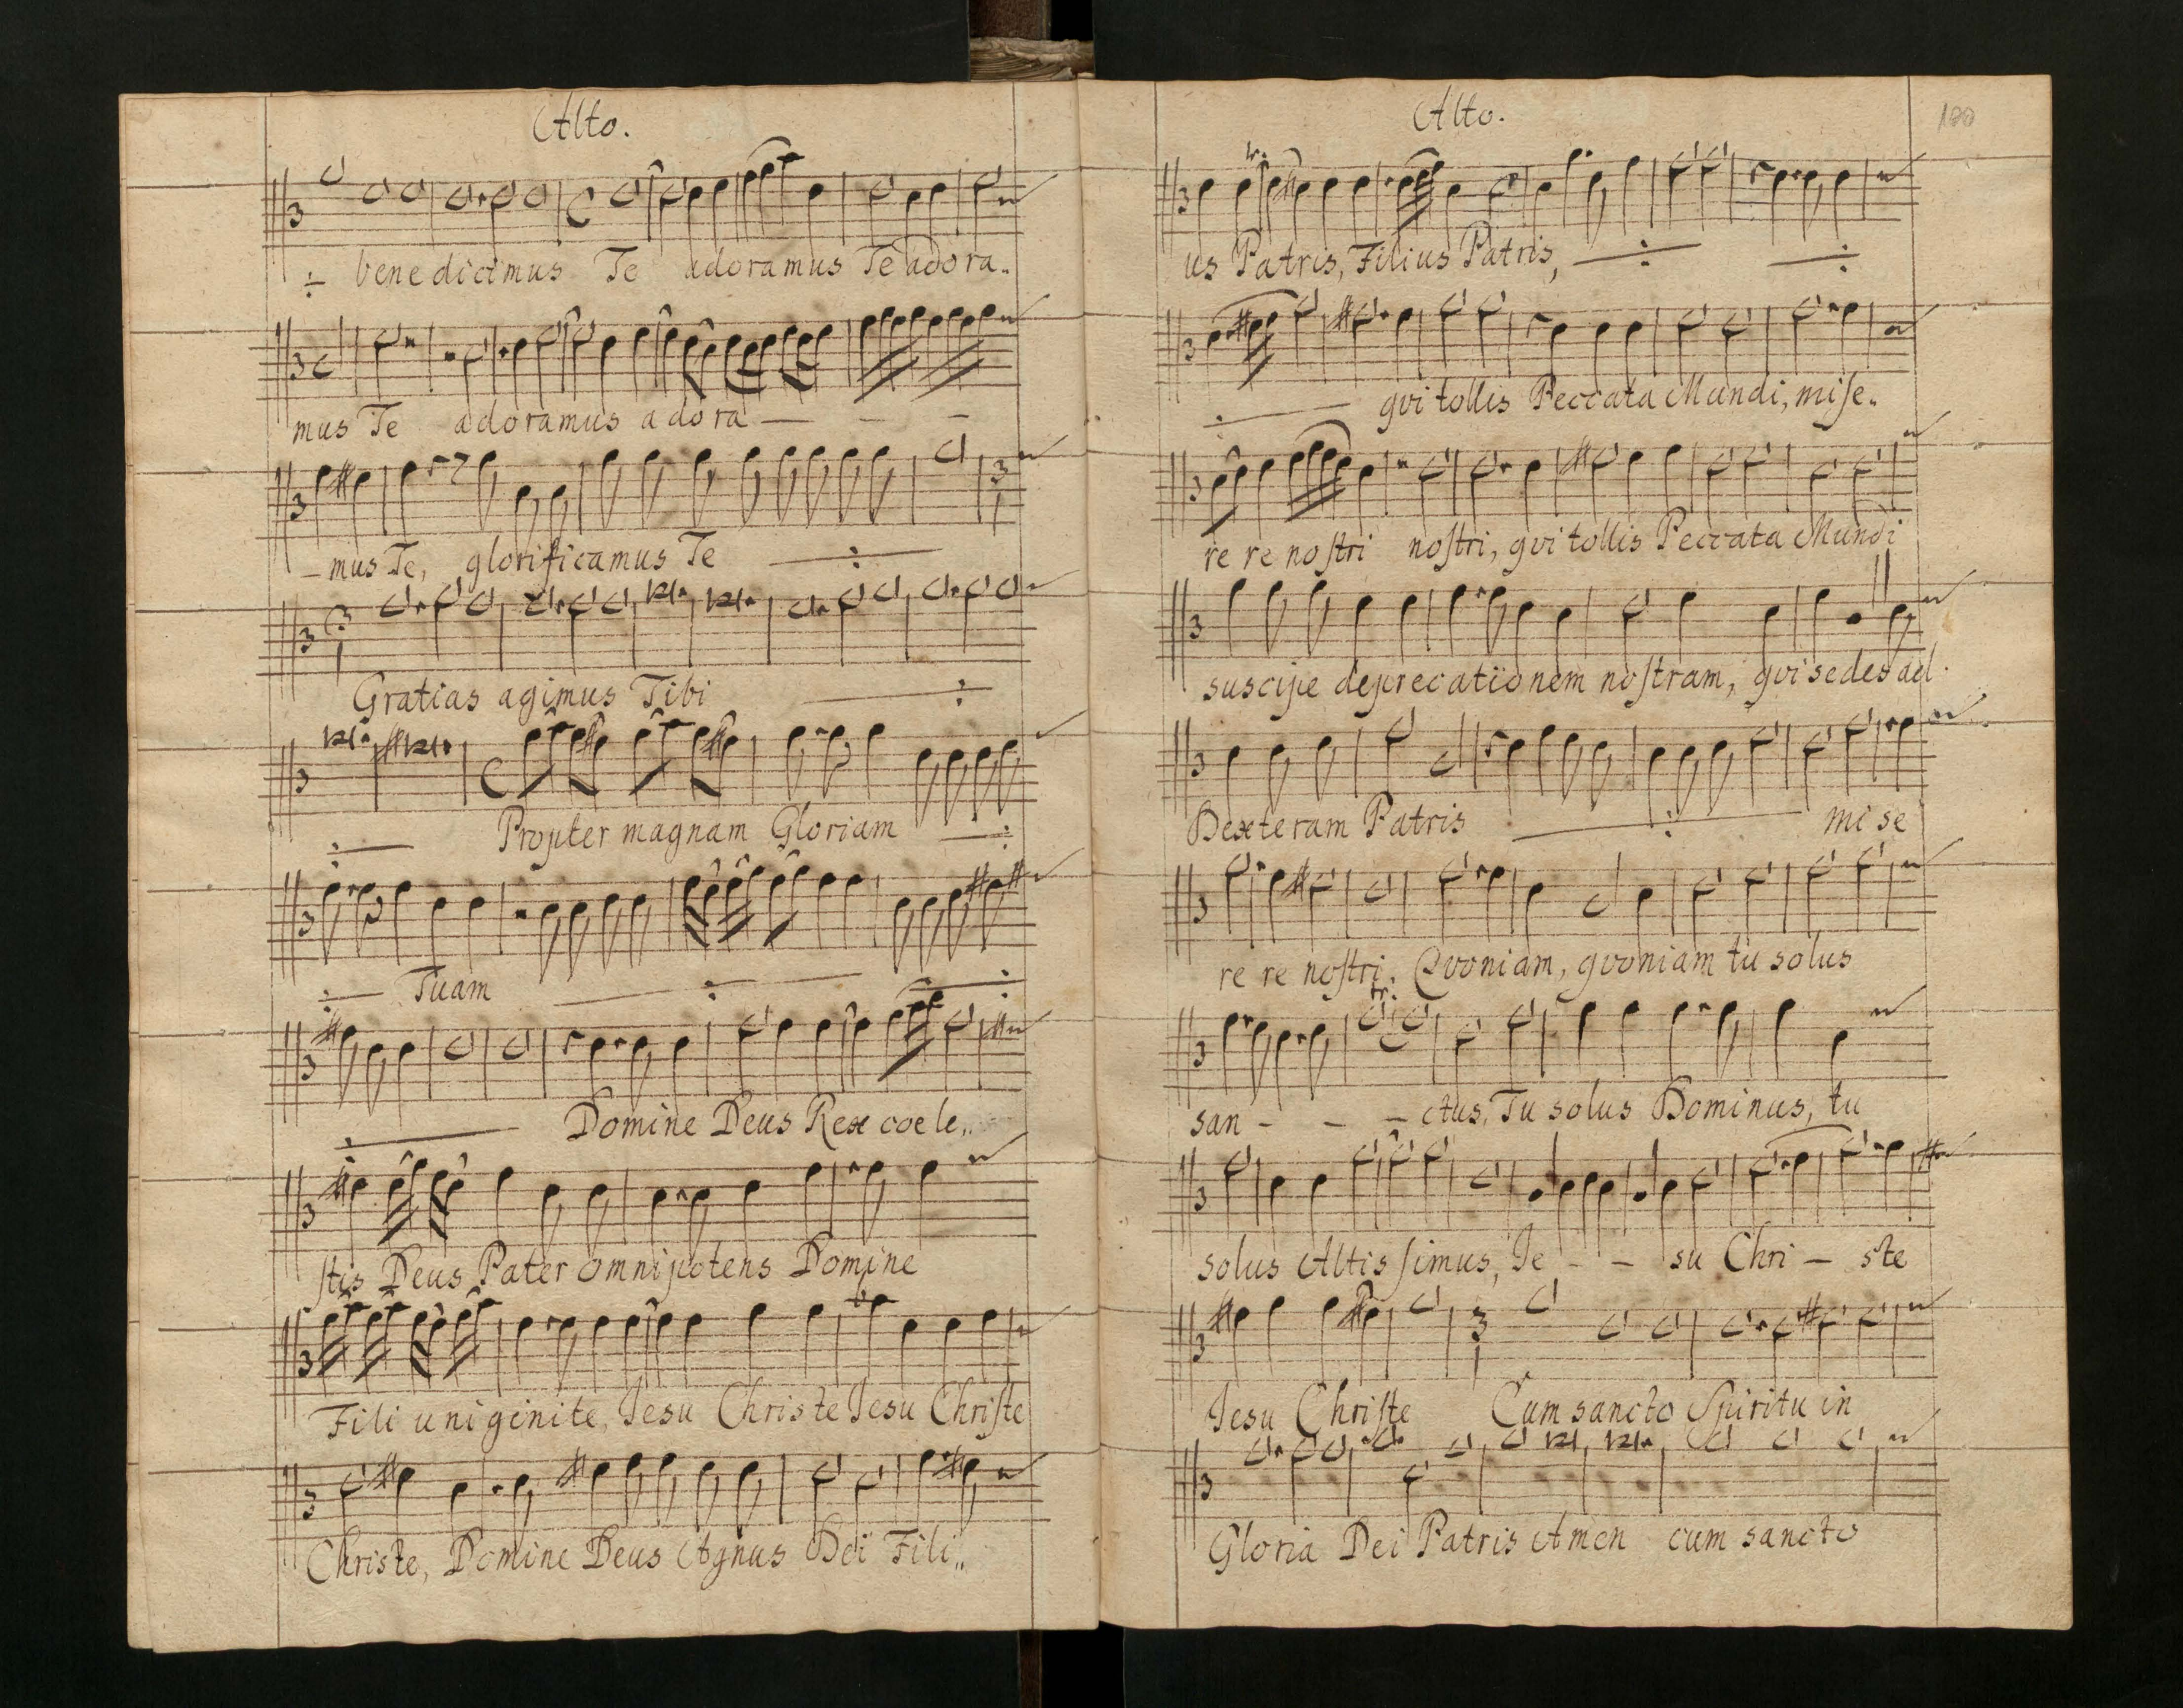 Alto.
÷ bene dicimus Te adoramus Te adora„
mus Te adoramus adora — — —
— mus Te, glorificamus Te ÷
Gratias agimus Tibi ÷
÷ Propter magnam Gloriam ÷
÷ Tuam ÷ ÷
÷ Domine Deus Rex coele„
stis Deus Pater omnipotens Domine
Fili uniginite, Jesu Christe Jesu Christe
Christe, Domine Deus Agnus Dei Fili„
Alto.
100
tr.
us Patris, Filius Patris, ÷ ÷
÷ qvi tollis Peccata Mundi, mise„
re re nostri nostri, qvi tollis Peccata Mundi
suscipe deprecationem nostram, qvi sedes ad
Dexteram Patris ÷ mi se
re re nostri. Qvoniam, qvoniam tu solus
tr.
san - - - ctus, Tu solus Dominus, tu
solus Altissimus, Je - - su Chri - ste
Jesu Christe Cum sancto Spiritu in
Gloria Dei Patris Amen cum sancto